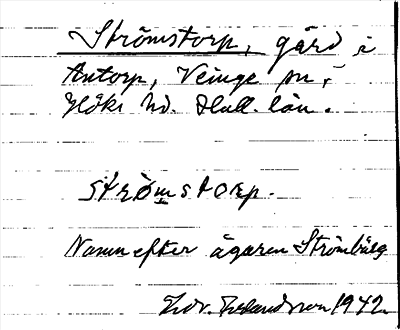 Strömstorp, gård i
Antorp, Veinge sn,
Höks hd. Hall. län.
strömstorp.
Namn efter ägaren Strömbälg
1942